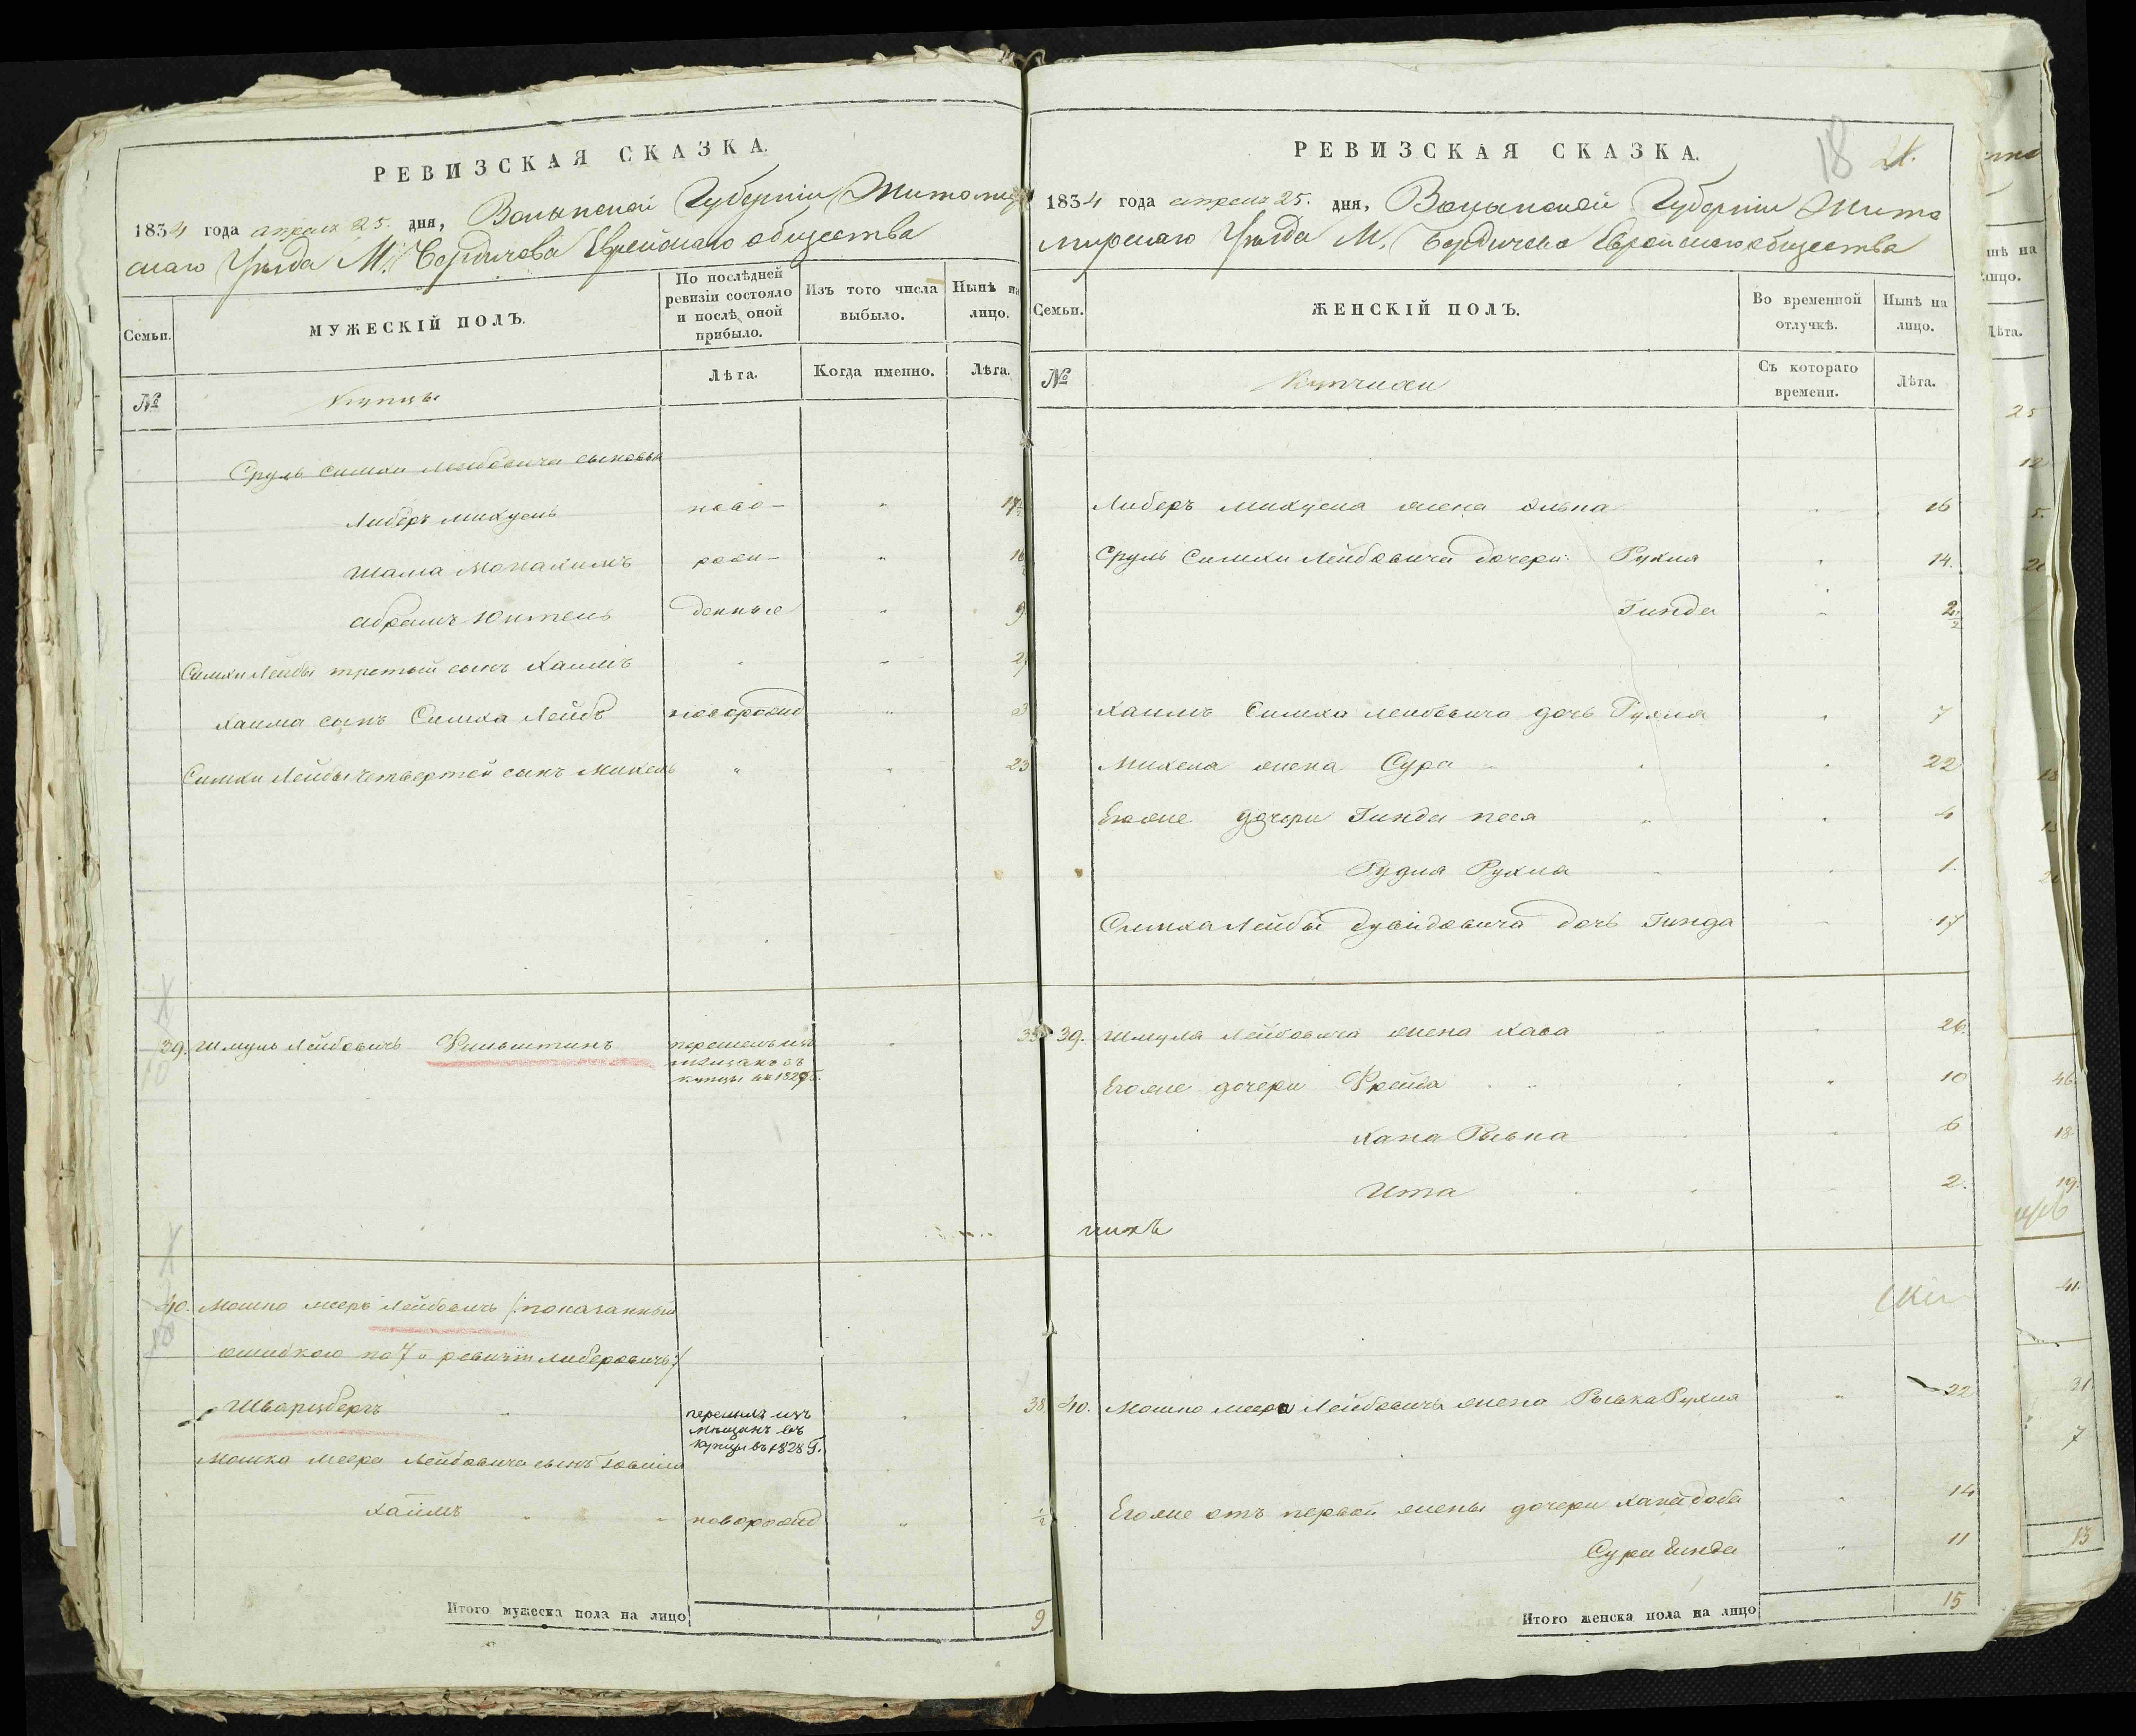 РЕВИЗСКАЯ СКАЗКА.
1834 года апреля 25. дня, Волынской Губерніи Житомир
скаго Уѣзда М. Бердичева Еврейскаго общества
Семьи.
МУЖЕСКІЙ ПОЛЪ.
По послѣдней ревизіи состояло и послѣ оной прибыло.
Изъ того числа выбыло.
Нынѣ на лицо.
№
Купцы
Лѣта.
Когда именно.
Лѣта.
Сруль Симхи Лейбовича сыновья
Либеръ Михцель ново-
Шама Монахимъ рожи-
Абрамъ Юктель денные 9
Симхи Лейбы третьий сынъ Хаимъ
Хаима сынъ Симха Лейбъ новорожд 3
Симхи Лейбы четвертей сынъ Михель 23
39. Шмуль Лейбовичъ перешелъ изъ мещанъ въ купцы въ 1829 г. 35
40. Мошко Мееръ Лейбовичъ /:показанный
ошибкою по 7й ревизіи Либеровичъ:/
Шварцбергъ перешелъ изъ мещанъ въ купцы въ 1828 г. 38
Мошка Меера Лейбовича сынъ
Хаимъ новорожд ½
Итого мужеска пола на лицо 9
РЕВИЗСКАЯ СКАЗКА.
18 21.
1834 года апреля 25. дня, Волынской Губерніи Жито
мирскаго Уѣзда М. Бердичева Еврейскаго общества
Семьи.
ЖЕНСКІЙ ПОЛЪ.
Во временной отлучкѣ.
Нынѣ на лицо.
№
Купчихи
Съ котораго времени.
Лѣта.
Либеръ Михцела жена 16
Сруль Симхи Лейбовича дочери: Рухля 14.
Гинда 2½
Хаимъ Симха Лейбовича дочь Рухля 7
Михела жена Сура 22
Егоже дочери Гинда Песя 4
Рухла 1.
Симха Лейбы Дувидовича дочь Гинда 17
39. Шмуля Лейбовича жена Хава 26.
Егоже дочери Фрейда 10
Хана Рывка 6
Ита 2.
40. Мошко Меера Лейбовича жена Рывка Рухля 22
Егоже отъ первой жены дочери 14
Сура Гинда 11
Итого женска пола на лицо 15